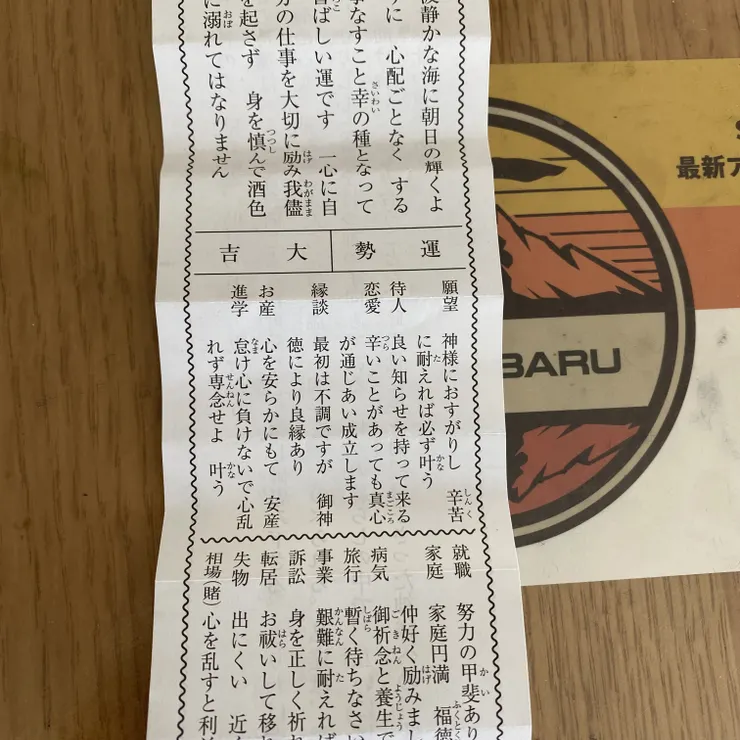 波静かな海に朝日の輝くよ
うに 心配ごとなく する
事なすこと幸の種となって
喜ばしい運です 一心に自
分の仕事を大切に励み我儘
を起さず 身を慎んで酒色
に溺れてはなりません
運勢 大吉
願望 神様におすがりし 辛苦
に耐えれば必ず叶う
待人 良い知らせを持って来る
恋愛 辛いことがあっても真心
が通じあい成立します
縁談 最初は不調ですが 御神
徳により良縁あり
お産 心を安らかにもて 安産
進学 怠け心に負けないで心乱
れず専念せよ 叶う
就職 努力の甲斐あり
家庭 家庭円満 福徳
仲好く励みまし
病気 御祈念と養生で
旅行 暫く待ちなさい
事業 艱難に耐えれば
訴訟 身を正しく祈れ
転居 お祓いして移れ
失物 出にくい 近く
相場(賭) 心を乱すと利
S
最新ア
BARU